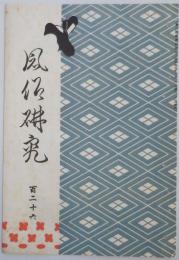 風俗研究
百二十六